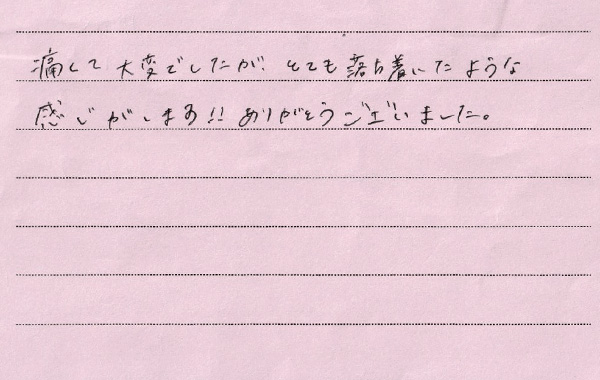 痛くて大変でしたが、とても落ち着いたような
感じがします!!ありがとうございました。